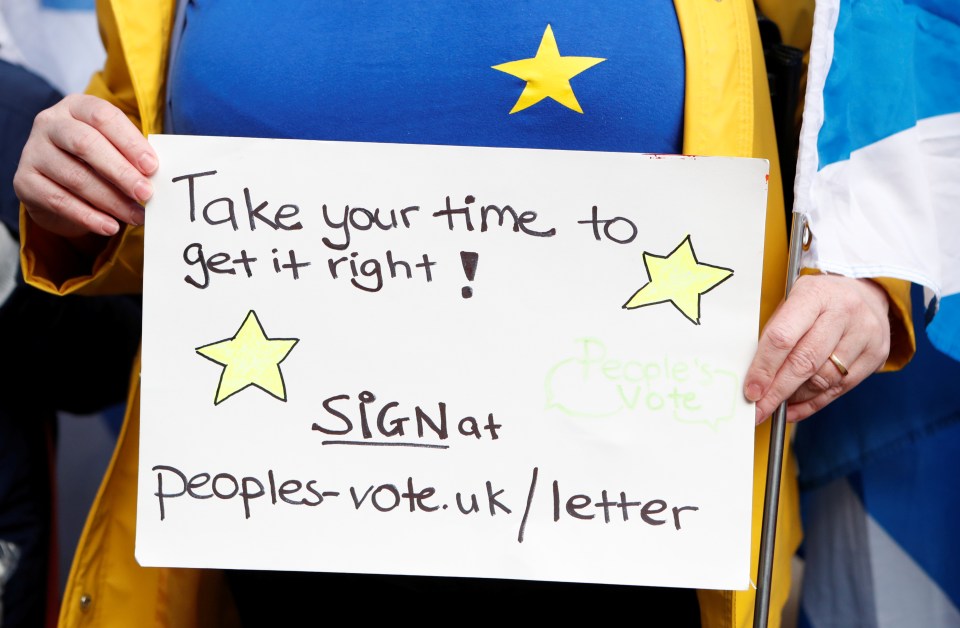 Take your time to
get it right!
People's
Vote
SiGN at
peoples-vote.uk/letter